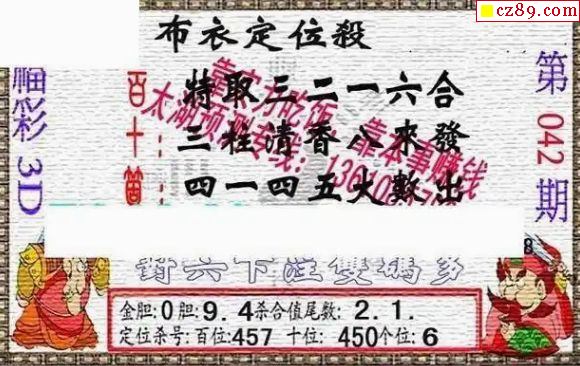 cz89.com
布衣定位殺
福彩3D
第042期
百十箇
特取三二一六合
三柱清香八來發
四一四五大數出
對六下注雙碼多
金胆:0胆:9.4杀合值尾数:2.1.
定位杀号:百位:457 十位:450个位:6